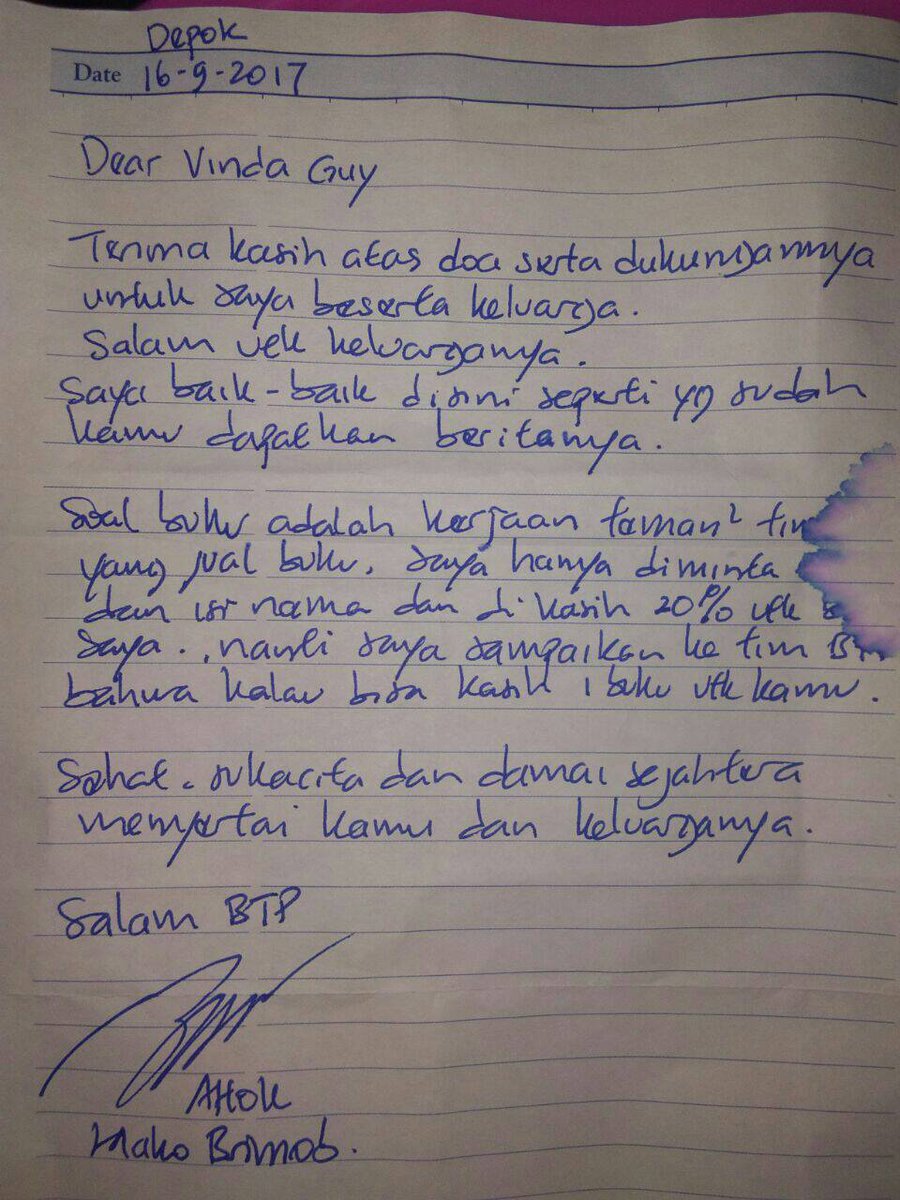 Depok
Date 16-9-2017
Dear Vinda Guy
Terima kasih atas doa serta dukungannya
untuk saya beserta keluarga.
Salam utk keluarganya.
Saya baik-baik disini seperti yg sudah
kamu dapatkan beritanya.
Soal buku adalah kerjaan teman² tim
yang jual buku. saya hanya diminta
dan isi nama dan di kasih 20% utk
saya.. nanti saya sampaikan ke tim
bahwa kalau bisa kasih 1 buku utk kamu.
Sehat. sukacita dan damai sejahtera
menyertai kamu dan keluarganya.
Salam BTP
AHok
Mako Brimob.